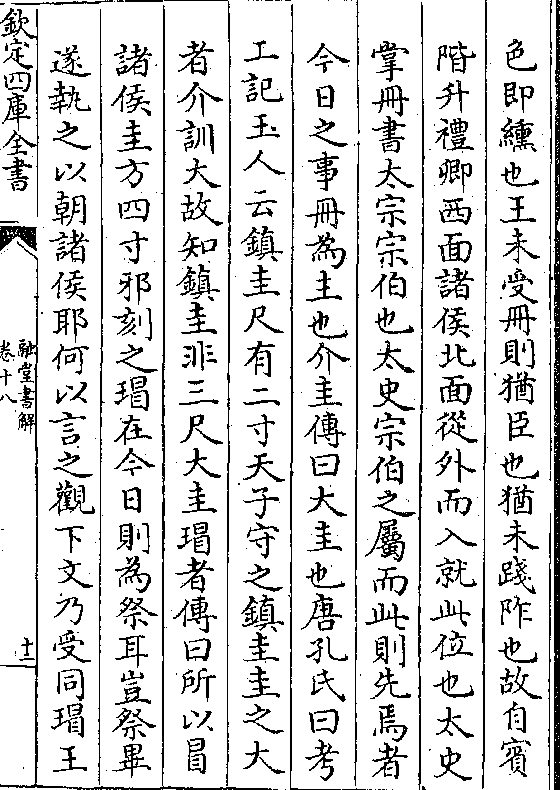 色即纁也王未受冊則猶臣也猶未踐阼也故自賓
階升禮卿西面諸侯北面從外而入就此位也太史
掌冊書太宗宗伯也太史宗伯之屬而此則先焉者
今日之事冊為主也介圭傳曰大圭也唐孔氏曰考
工記玉人云鎮圭尺有二寸天子守之鎮圭圭之大
者介訓大故知鎮圭非三尺大圭瑁者傳曰所以冒
諸侯圭方四寸邪刻之瑁在今日則為祭耳豈祭畢
遂執之以朝諸侯耶何以言之觀下文乃受同瑁王
欽定四庫全書
融堂書解
卷十八
十二